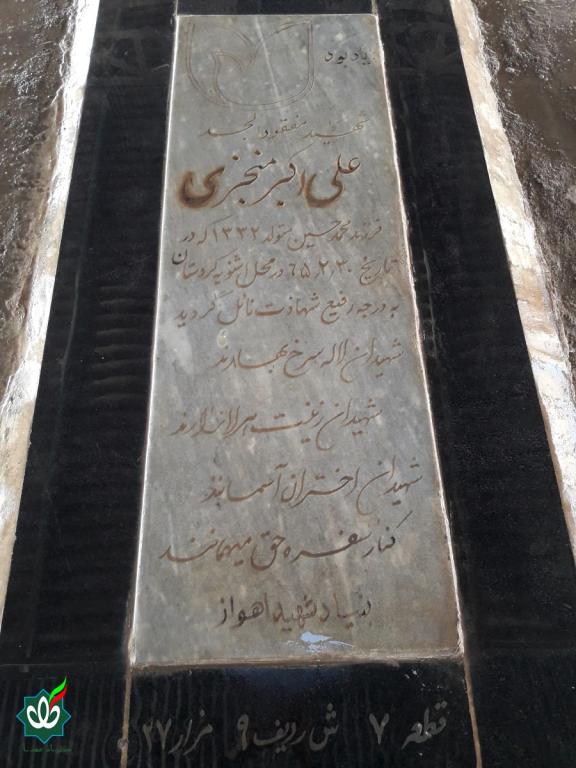 یادبود
شهید مفقودالجسد
علی اکبر منجزی
فرزند محمدحسین متولد ۱۳۳۲ که در
تاریخ ۶۵٫۲٫۳۰ در محل اشنویه کردستان
به درجه رفیع شهادت نائل گردید
شهیدان لاله سرخ بهارند
شهیدان زینت هر لاله‌زارند
شهیدان اختران آسمانند
کنار سفره حق میهمانند
بنیاد شهید اهواز
قطعه ۷ ش ردیف ۹ مزار ۲۷